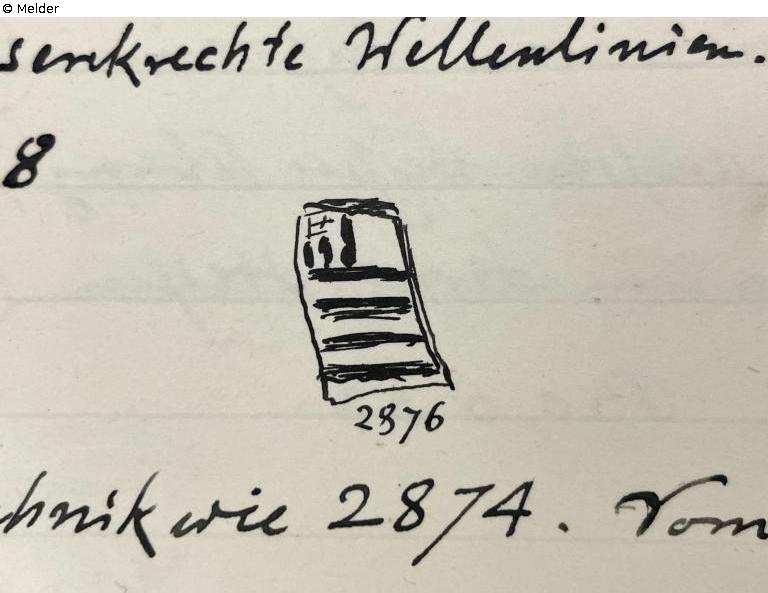 © Melder
senkrechte Wellenlinien.
8
2876
chnik wie 2874. Vom